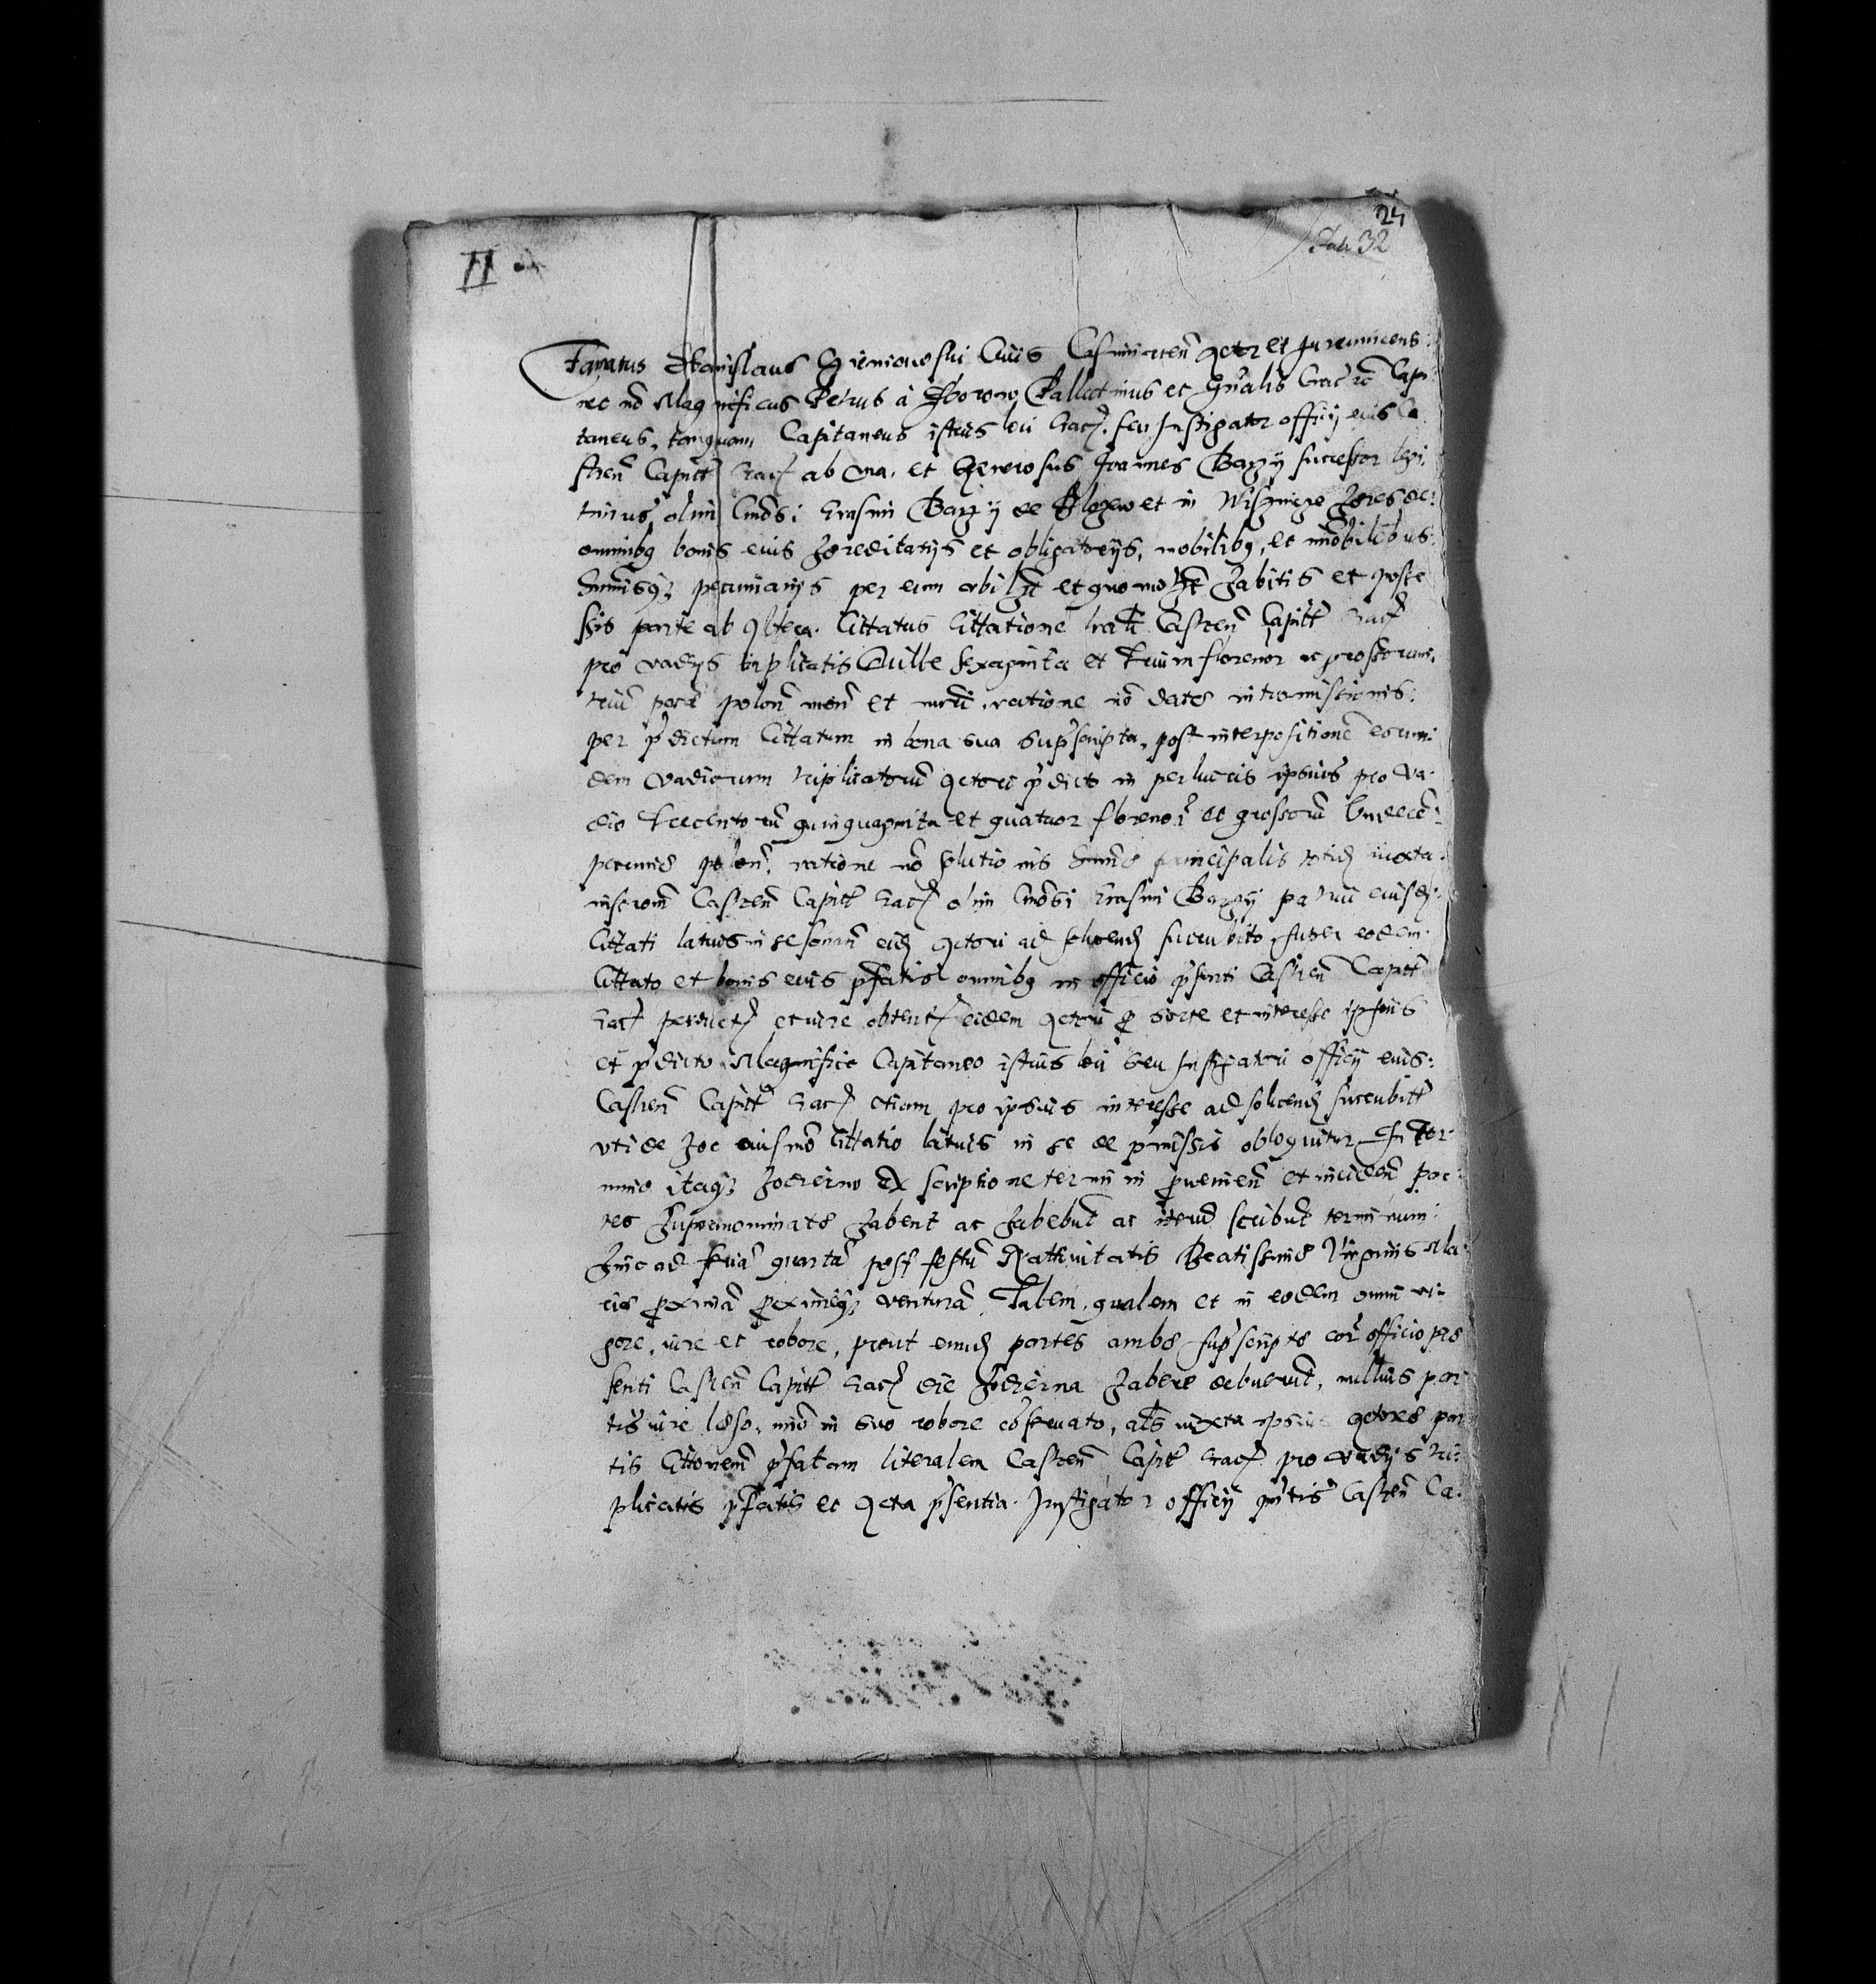 24
Fab 32
II
Famatus Stanislaus Gremiowski Ciuis Casimirien̄ Actor et Jureuincens
nec nō Magnificus Petrus à Sborow Pallatinus et Gn̄alis Crac̄ iē Capi
taneus, tanquam Capitaneus istius loci Crac̄. seu Instigator officij eius Ca
stren̄ Capitt Crac̄ ab una. et Generosus Joannes Barzy successor legi.
timus olim Gn̄osi Erasmi Barzy de Blozew et in Wisznicze Heres de
omnibq bonis eius Hereditarijs et obligatorijs, mobilibq, et im̄obilibus
Sum̄isq pecuniarijs per eum vbilzt et quomolzt Habitis et posse
ssis parte ab altera. Cittatus Cittatione lrāli Castren̄ Capitt Crac̄
pro vadijs triplicatis Mille sexaginta et trium florenor̄ ac grossorum.
trium pecū polon̄ mon̄ et nūri. ratione nō datae intromissionis.
per p̄dictum Cittatum in bona sua sup̄scripta, post interpositionē eorum
dem vadiorum triplicatorū Actori p̄dicto in perlucris ipsius pro va
dio trecentorū quinquaginta et quatuor florenor̄ et grossorū vndecē
pecuniae polon̄. ratione nō solutionis Sum̄ae principalis totid̄ iuxta
inscrom̄ Castren̄ Capitt Crac̄ olim Gn̄osi Erasmi Barzy patrui eiusd̄
Cittati latius in se sonan̄ eid̄ Actori ad soluend̄ succubito, super eodem
Cittato et bonis eius p̄fatis omnibq in officio p̄senti Castren̄ Capitt
Crac̄ peruict̄ et iure obtent̄ eidem Actori p sorte et interesse ipsius
et p̄dicto Magnifico Capitaneo istius loci seu Instigatori officij eius
Castren̄ Capitt Crac̄ etiam pro ipsius interesse ad soluend̄ succubitt
vti de Hoc eiusmō Cittatio latius in se de p̄missis obloquitur In Ter
mino itaq Hodierno Ex scriptione termini proueniē et incidēn par
tes Supranominatae Habent ac Habebunt ac iterū scribunt terminum
Hinc ad feriā quartā post festū Nattiuitatis Beatissimae Virginis Ma
riae proximā proximeq venturā. Talem, qualem et in eodem omni vi
gore, iure et robore, prout eaed̄ partes ambae sup̄scriptae corā officio prae
senti Castren̄ Capitt Crac̄ die Hodierna Habere debuerūt, nullius par
tis iure laeso, imō in suo robore cōseruato, als̄ iuxta ipsius Actoreae par
tis Cittonem p̄fatam literalem Castren̄ Capitt Crac̄ pro vadijs tri
plicatis p̄fatis et Acta p̄sentia. Instigator officij p̄ntis Castren̄ Ca.